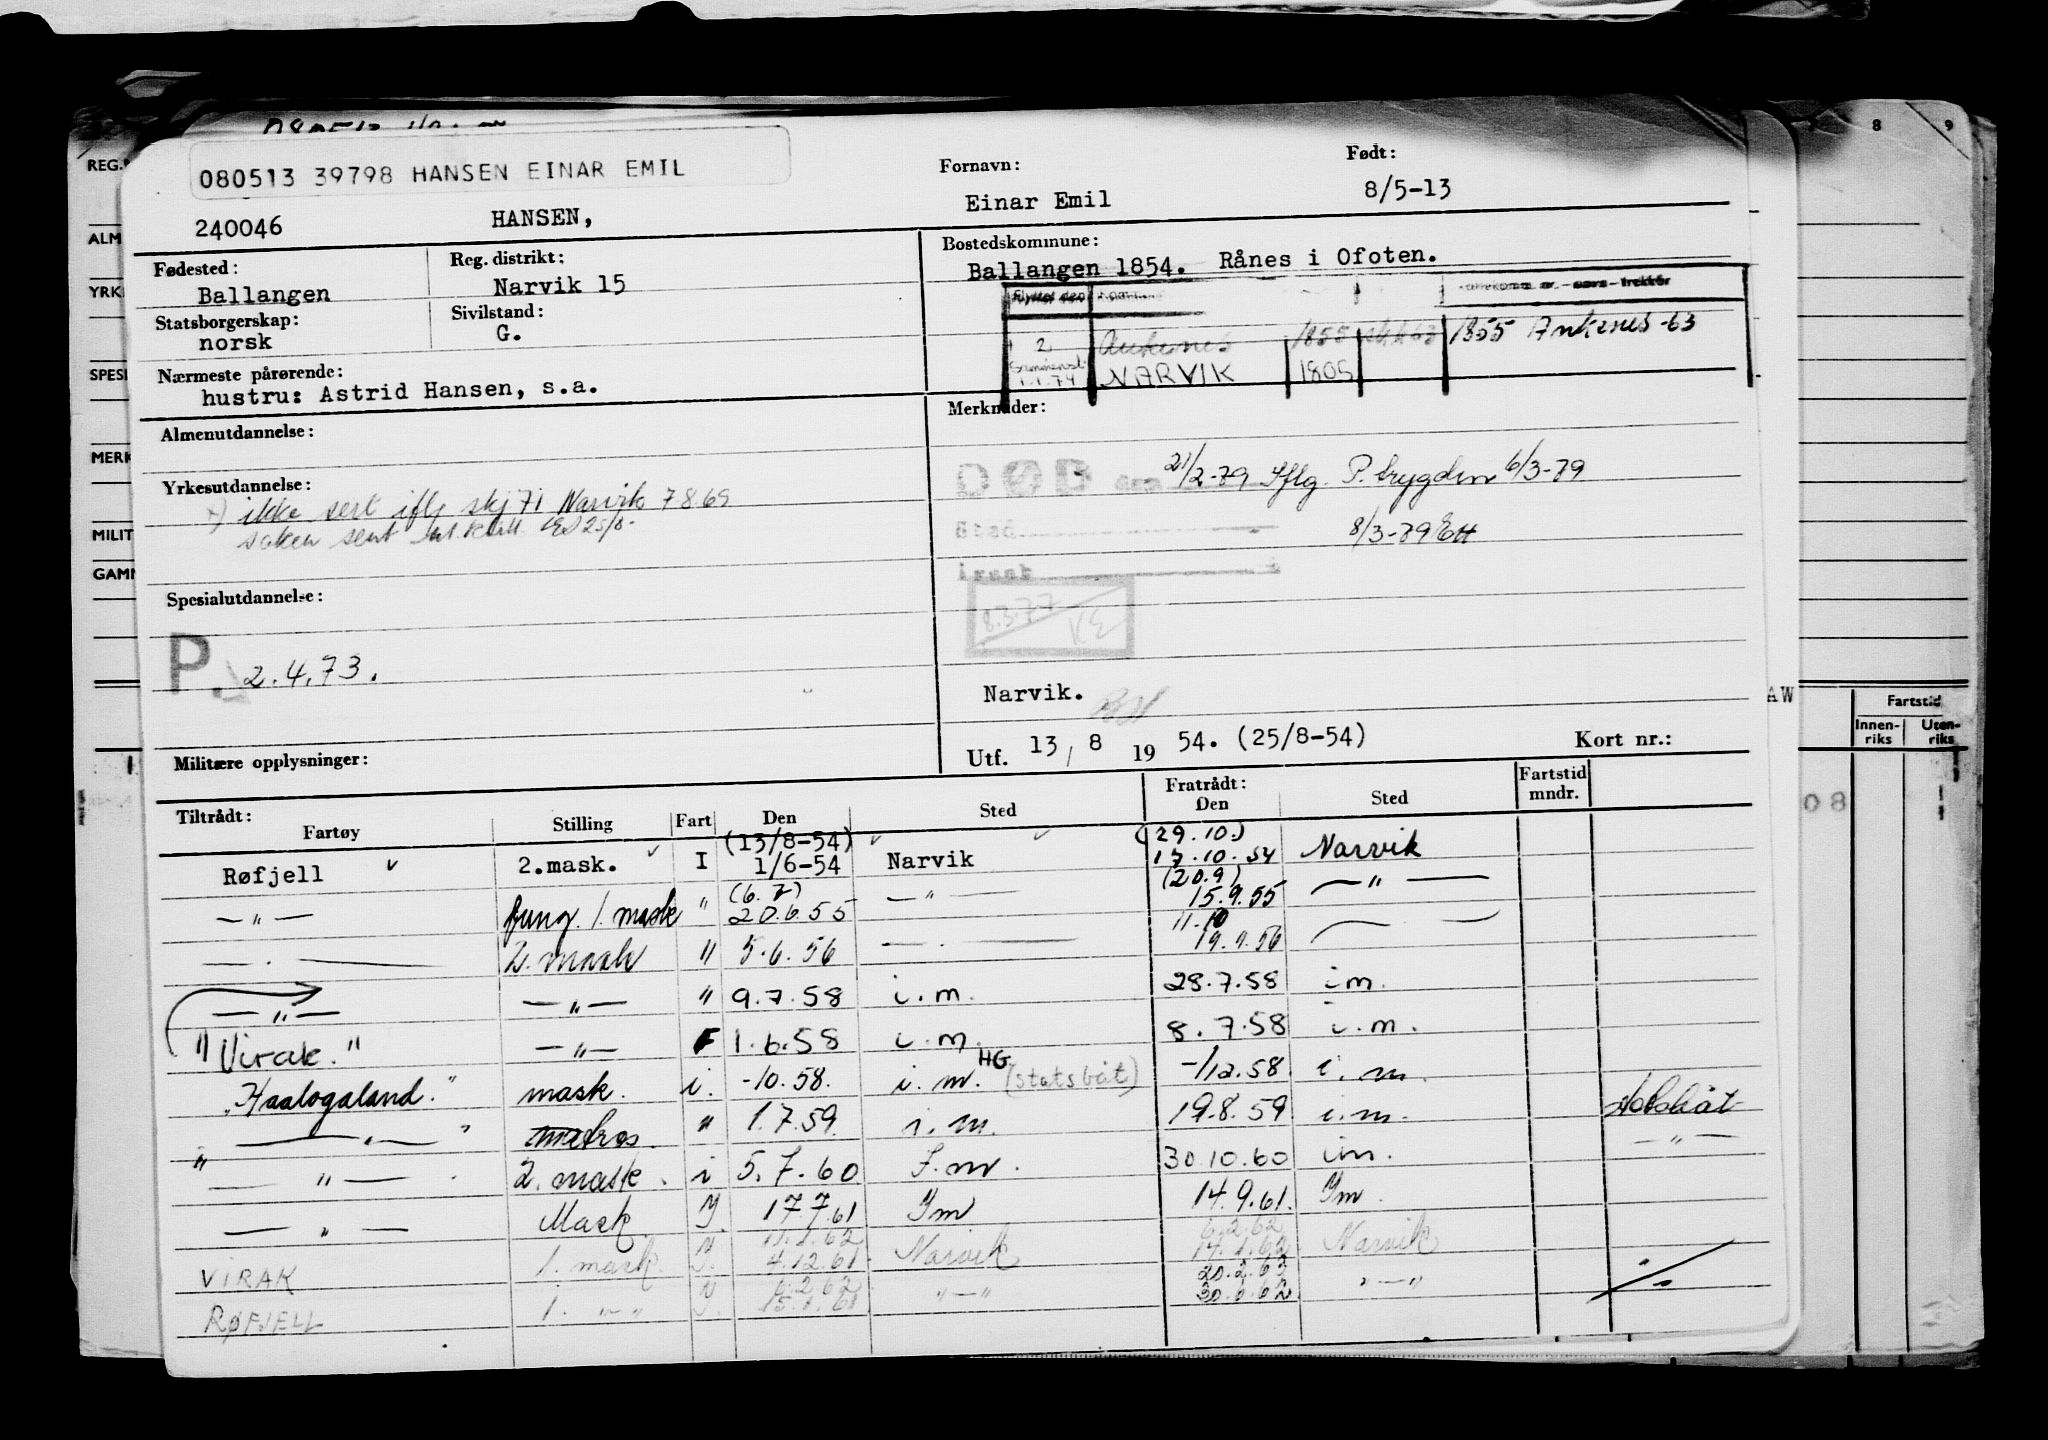 080513 39798 HANSEN EINAR EMIL
240046 HANSEN,
Fornavn: Einar Emil
Født: 8/5-13
Fødested: Ballangen
Reg. distrikt: Narvik 15
Bostedskommune: Ballangen 1854. Rånes i Ofoten.
Statsborgerskap: norsk
Sivilstand: G.
Flyttet den
2 Ankenes 1855 1855 Ankenes -63
1.1.74 NARVIK 1805
Nærmeste pårørende: hustru: Astrid Hansen, s.a.
Almenutdannelse:
Merknader:
21/2-79 Iflg. P. trygden 6/3-79
8/3-79
Yrkesutdannelse:
ikke sert iflg skj 71 Narvik 7 8 69
saken sent
8.3.77
Spesialutdannelse:
P. 2.4.73.
Narvik.
Utf. 13 / 8 19 54. (25/8-54) Kort nr.:
Militære opplysninger:
Tiltrådt: Fartøy Stilling Fart Den Sted Fratrådt: Den Sted Fartstid mndr.
(13/8-54) (29.10.)
Røfjell 2.mask. I 1/6-54 Narvik 17.10.54 Narvik
(6.7) (20.9)
— " — fung. 1. mask " 20.6.55 — " — 15.9.55 — " —
11.10
2. mask " 5.6.56 19.9.56
— " — — " — " 9.7.58 i.m. 28.7.58 i.m.
"Virak." — " — F 1.6.58 i.m. 8.7.58 i.m.
"Haalogaland." mask. i. -10.58. i.m. HG (Statsbåt) -/12.58. i.m.
— " — matros. " 1.7.59. i.m. 19.8.59 i.m. Statsbåt
— " — 2. mask. i 5.7.60 I.m. 30.10.60 i.m. — " —
— " — Mask. I. 17.7.61 Im 14.9.61. Im.
6.2.62
VIRAK 1. mask. 4.12.61 Narvik 14.1.62 Narvik
6.2.62 20.2.63
RØFJELL 1. — " 15.1.61 " — " 30.6.62 " — "
REG.
ALM
YRK
SPESI
MERK
MILIT
GAMM
8 9
AW
Fartstid
Innen-riks Uten-riks
08